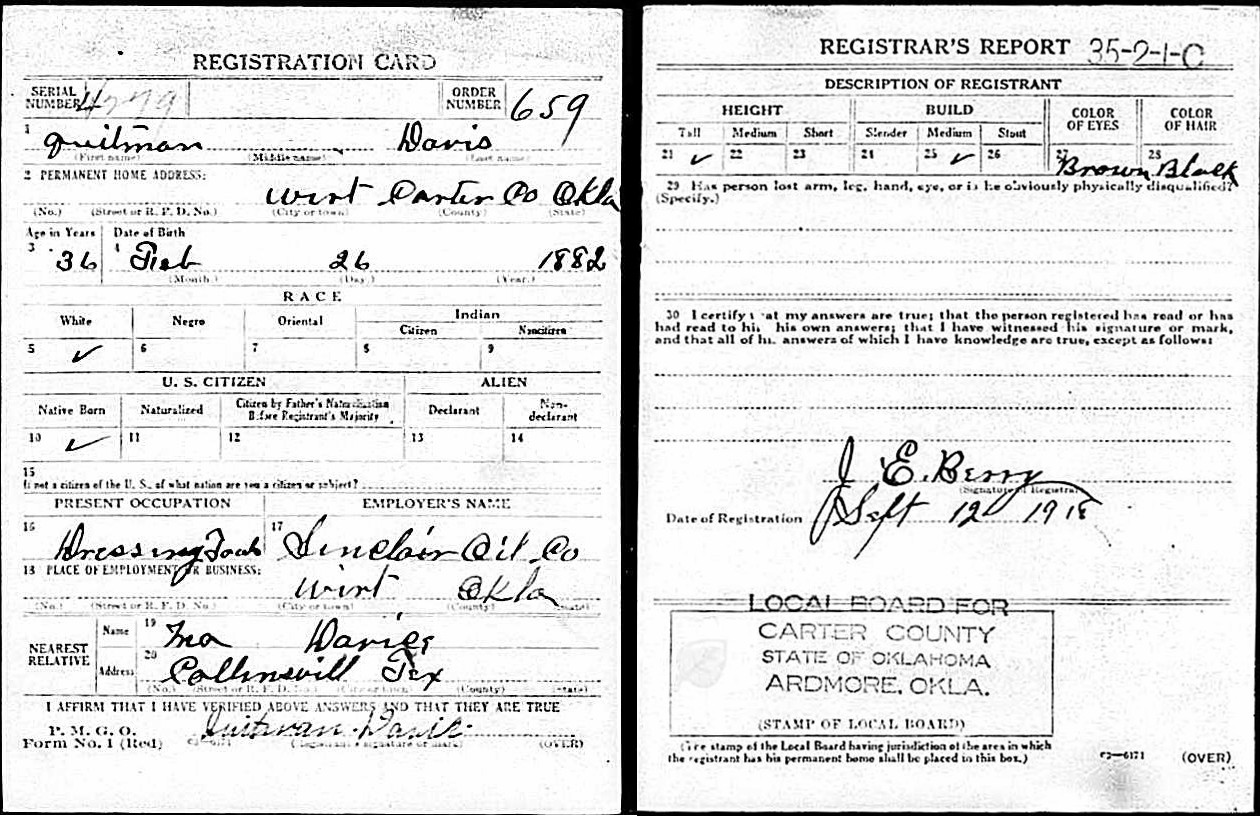 REGISTRATION CARD
SERIAL NUMBER 4779
ORDER NUMBER 659
1 Quitman Davis
(First name) (Middle name) (Last name)
2 PERMANENT HOME ADDRESS:
Wirt Carter Co Okla
(No.) (Street or R. F. D. No.) (City or town) (County) (State)
Age in Years Date of Birth
3 36 4 Feb 26 1882
(Month.) (Day.) (Year.)
RACE
White Negro Oriental Indian
Citizen Noncitizen
5 ✓ 6 7 8 9
U. S. CITIZEN ALIEN
Native Born Naturalized Citizen by Father's Naturalization Before Registrant's Majority Declarant Non-declarant
10 ✓ 11 12 13 14
15
If not a citizen of the U. S., of what nation are you a citizen or subject?
PRESENT OCCUPATION EMPLOYER'S NAME
16 Dressing Tools 17 Sinclair Oil Co
18 PLACE OF EMPLOYMENT OR BUSINESS:
Wirt Okla
(No.) (Street or R. F. D. No.) (City or town) (County) (State)
NEAREST RELATIVE
Name 19 Davies
Address 20 Collinsvill Tex
(No.) (Street or R. F. D. No.) (City or town) (County) (State)
I AFFIRM THAT I HAVE VERIFIED ABOVE ANSWERS AND THAT THEY ARE TRUE
P. M. G. O.
Form No. 1 (Red) Quitman Davis
(Registrant's signature or mark) (OVER)
REGISTRAR'S REPORT 35-2-1-C
DESCRIPTION OF REGISTRANT
HEIGHT BUILD COLOR OF EYES COLOR OF HAIR
Tall Medium Short Slender Medium Stout
21 ✓ 22 23 24 25 ✓ 26 27 Brown 28 Black
29 Has person lost arm, leg, hand, eye, or is he obviously physically disqualified?
(Specify.)
30 I certify that my answers are true; that the person registered has read or has
had read to him his own answers; that I have witnessed his signature or mark,
and that all of his answers of which I have knowledge are true, except as follows:
J. E. Berry
(Signature of Registrar)
Date of Registration Sept 12 1918
LOCAL BOARD FOR
CARTER COUNTY
STATE OF OKLAHOMA
ARDMORE, OKLA.
(STAMP OF LOCAL BOARD)
(The stamp of the Local Board having jurisdiction of the area in which
the registrant has his permanent home shall be placed in this box.)
03—6171 (OVER)